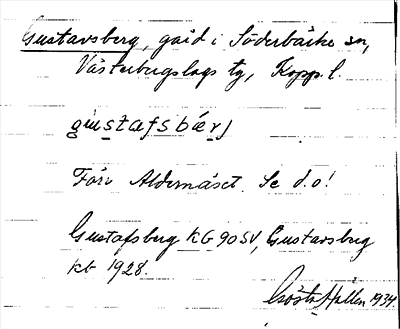 Gustavsberg, gård i Söderbärke sn,
Västerbergslags tg, Kopp. l.
gustafsbärj
Förr Aldernäset. Se d.o!
Gustafsberg KG 90 SV, Gustavsberg
kb 1928.
Gösta Hallen 1934.